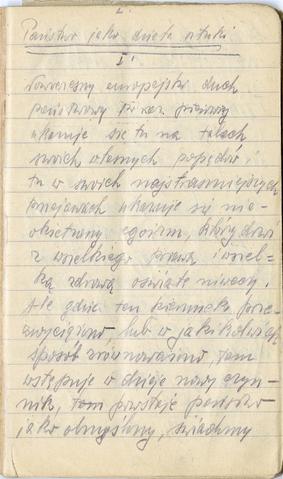 I.
Państwo jako dzieło sztuki
I.
Nowoczesny europejski duch
państwowy po raz pierwszy
ukazuje się tu na falach
swoich własnych popędów i
tu w swoich najstraszniejszych
przejawach ukazuje się nie-
okiełzany egoizm, który drwi
z wszelkiego prawa i wszel-
ką zdrową oświatę niweczy.
Ale gdzie ten kierunek prze-
zwyciężono, lub w jakikolwiek
sposób zrównoważono, tam
wstępuje w dzieje nowy czyn-
nik, tam powstaje państwo
jako obmyślony, świadomy